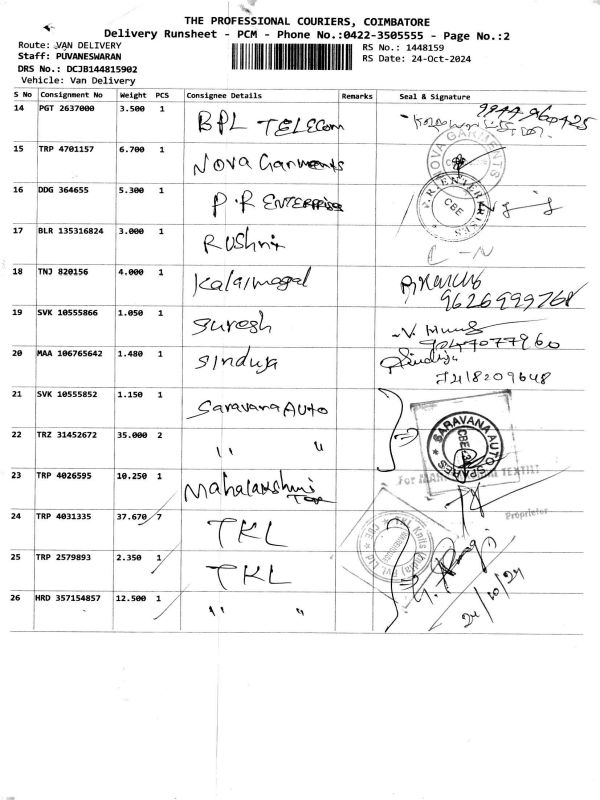 THE PROFESSIONAL COURIERS, COIMBATORE
Delivery Runsheet - PCM - Phone No.:0422-3505555 - Page No.:2
Route: VAN DELIVERY
RS No.: 1448159
Staff: PUVANESWARAN
RS Date: 24-Oct-2024
DRS No.: DCJB144815902
Vehicle: Van Delivery
S No Consignment No Weight PCS Consignee Details Remarks Seal & Signature
14 PGT 2637000 3.500 1 BPL TELECOM
15 TRP 4701157 6.700 1 Nova Garments NOVA GARMENTS
16 DDG 364655 5.300 1 P.R ENTERPRISE P.R.ENTERPRISES CBE
17 BLR 135316824 3.000 1
18 TNJ 820156 4.000 1 Kalaimagal 9626999768
19 SVK 10555866 1.050 1 Suresh
20 MAA 106765642 1.480 1 Sinduja
21 SVK 10555852 1.150 1 Saravana Auto
22 TRZ 31452672 35.000 2 " " SARAVANA AUTO SPARES
23 TRP 4026595 10.250 1 Mahalakshmi Tex
Proprietor
24 TRP 4031335 37.670 7 TKL
25 TRP 2579893 2.350 1 TKL
26 HRD 357154857 12.500 1 " "
24/10/24